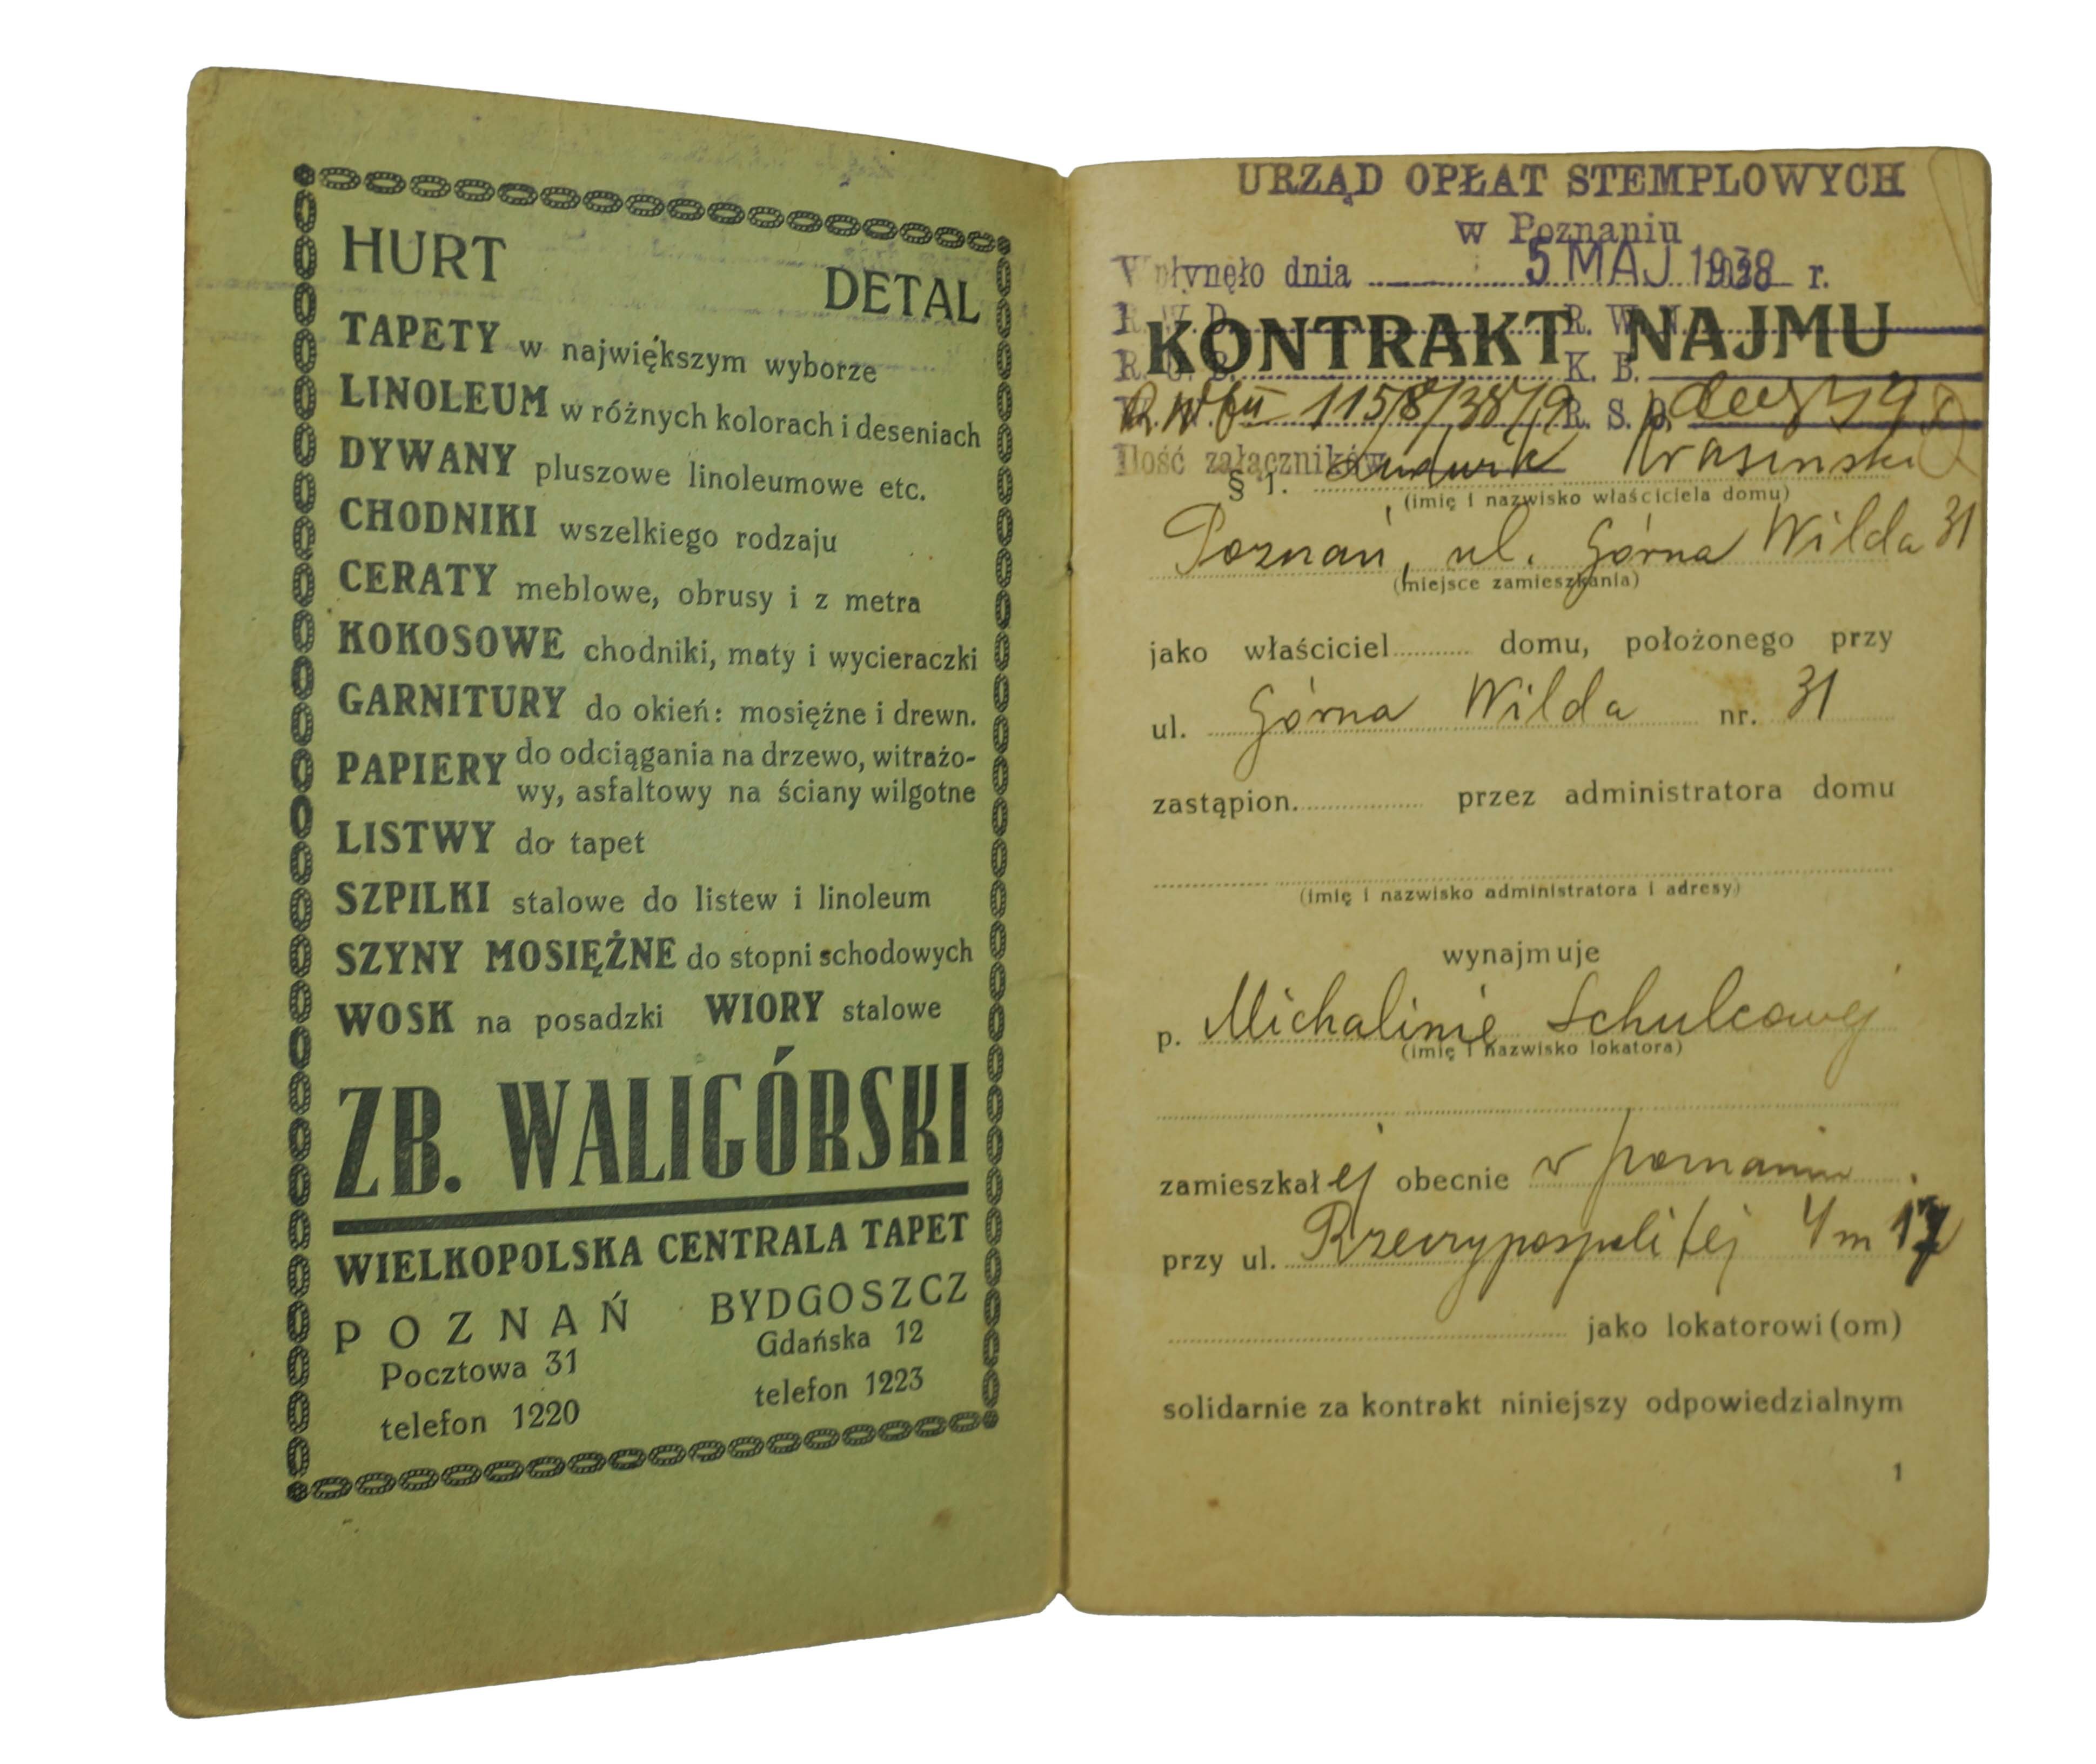 HURT DETAL
TAPETY w największym wyborze
LINOLEUM w różnych kolorach i deseniach
DYWANY pluszowe linoleumowe etc.
CHODNIKI wszelkiego rodzaju
CERATY meblowe, obrusy i z metra
KOKOSOWE chodniki, maty i wycieraczki
GARNITURY do okień: mosiężne i drewn.
PAPIERY do odciągania na drzewo, witrażo-
wy, asfaltowy na ściany wilgotne
LISTWY do tapet
SZPILKI stalowe do listew i linoleum
SZYNY MOSIĘŻNE do stopni schodowych
WOSK na posadzki WIORY stalowe
ZB. WALIGÓRSKI
WIELKOPOLSKA CENTRALA TAPET
POZNAŃ BYDGOSZCZ
Pocztowa 31 Gdańska 12
telefon 1220 telefon 1223
URZĄD OPŁAT STEMPLOWYCH
w Poznaniu
Wpłynęło dnia 5 MAJ 1938 r.
KONTRAKT NAJMU
K. B.
115/8/38/9 R. S. D.
Ilość załączników
§ 1. Krasinski
(imię i nazwisko właściciela domu)
Poznań, ul. Górna Wilda 31
(miejsce zamieszkania)
jako właściciel domu, położonego przy
ul. Górna Wilda nr. 31
zastąpion. przez administratora domu
(imię i nazwisko administratora i adresy)
wynajmuje
p. Michalinie Schulcowej
(imię i nazwisko lokatora)
zamieszkałej obecnie w Poznaniu
przy ul. Rzeczypospolitej 4 m 17
jako lokatorowi(om)
solidarnie za kontrakt niniejszy odpowiedzialnym
1